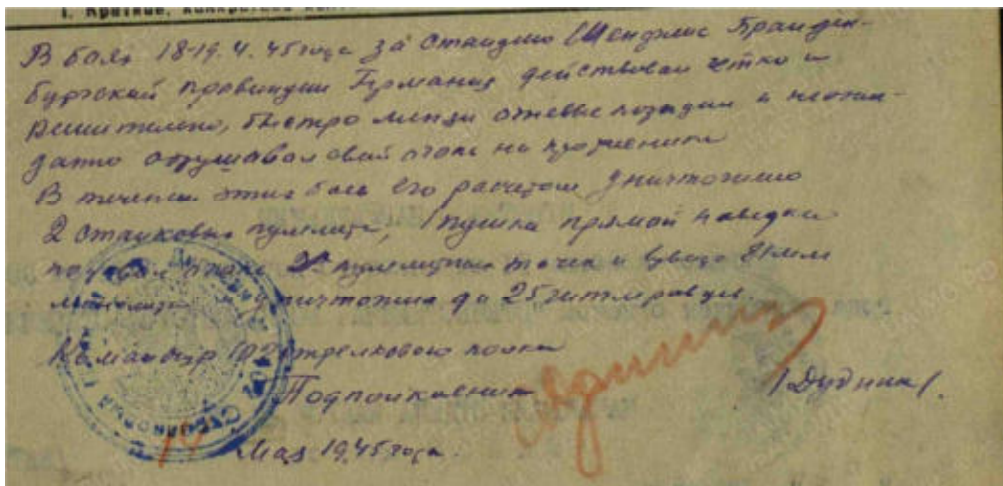 I. Краткое, конкретное
В боях 18-19.4.45 года за станцию Бранден-
бургской провинции Германия действовал четко и
решительно, быстро менял огневые позиции и неожи-
данно обрушивал свой огонь на противника
В течении этих боев его расчетом уничтожено
2 станковых пулемета, 1 пушка прямой наводки
подавил огонь 2х пулеметных точек и взвода 81 мм
минометов и уничтожил до 25 гитлеровцев.
Командир 102 стрелкового полка
Подполковник /Дудник/.
Мая 1945 года.